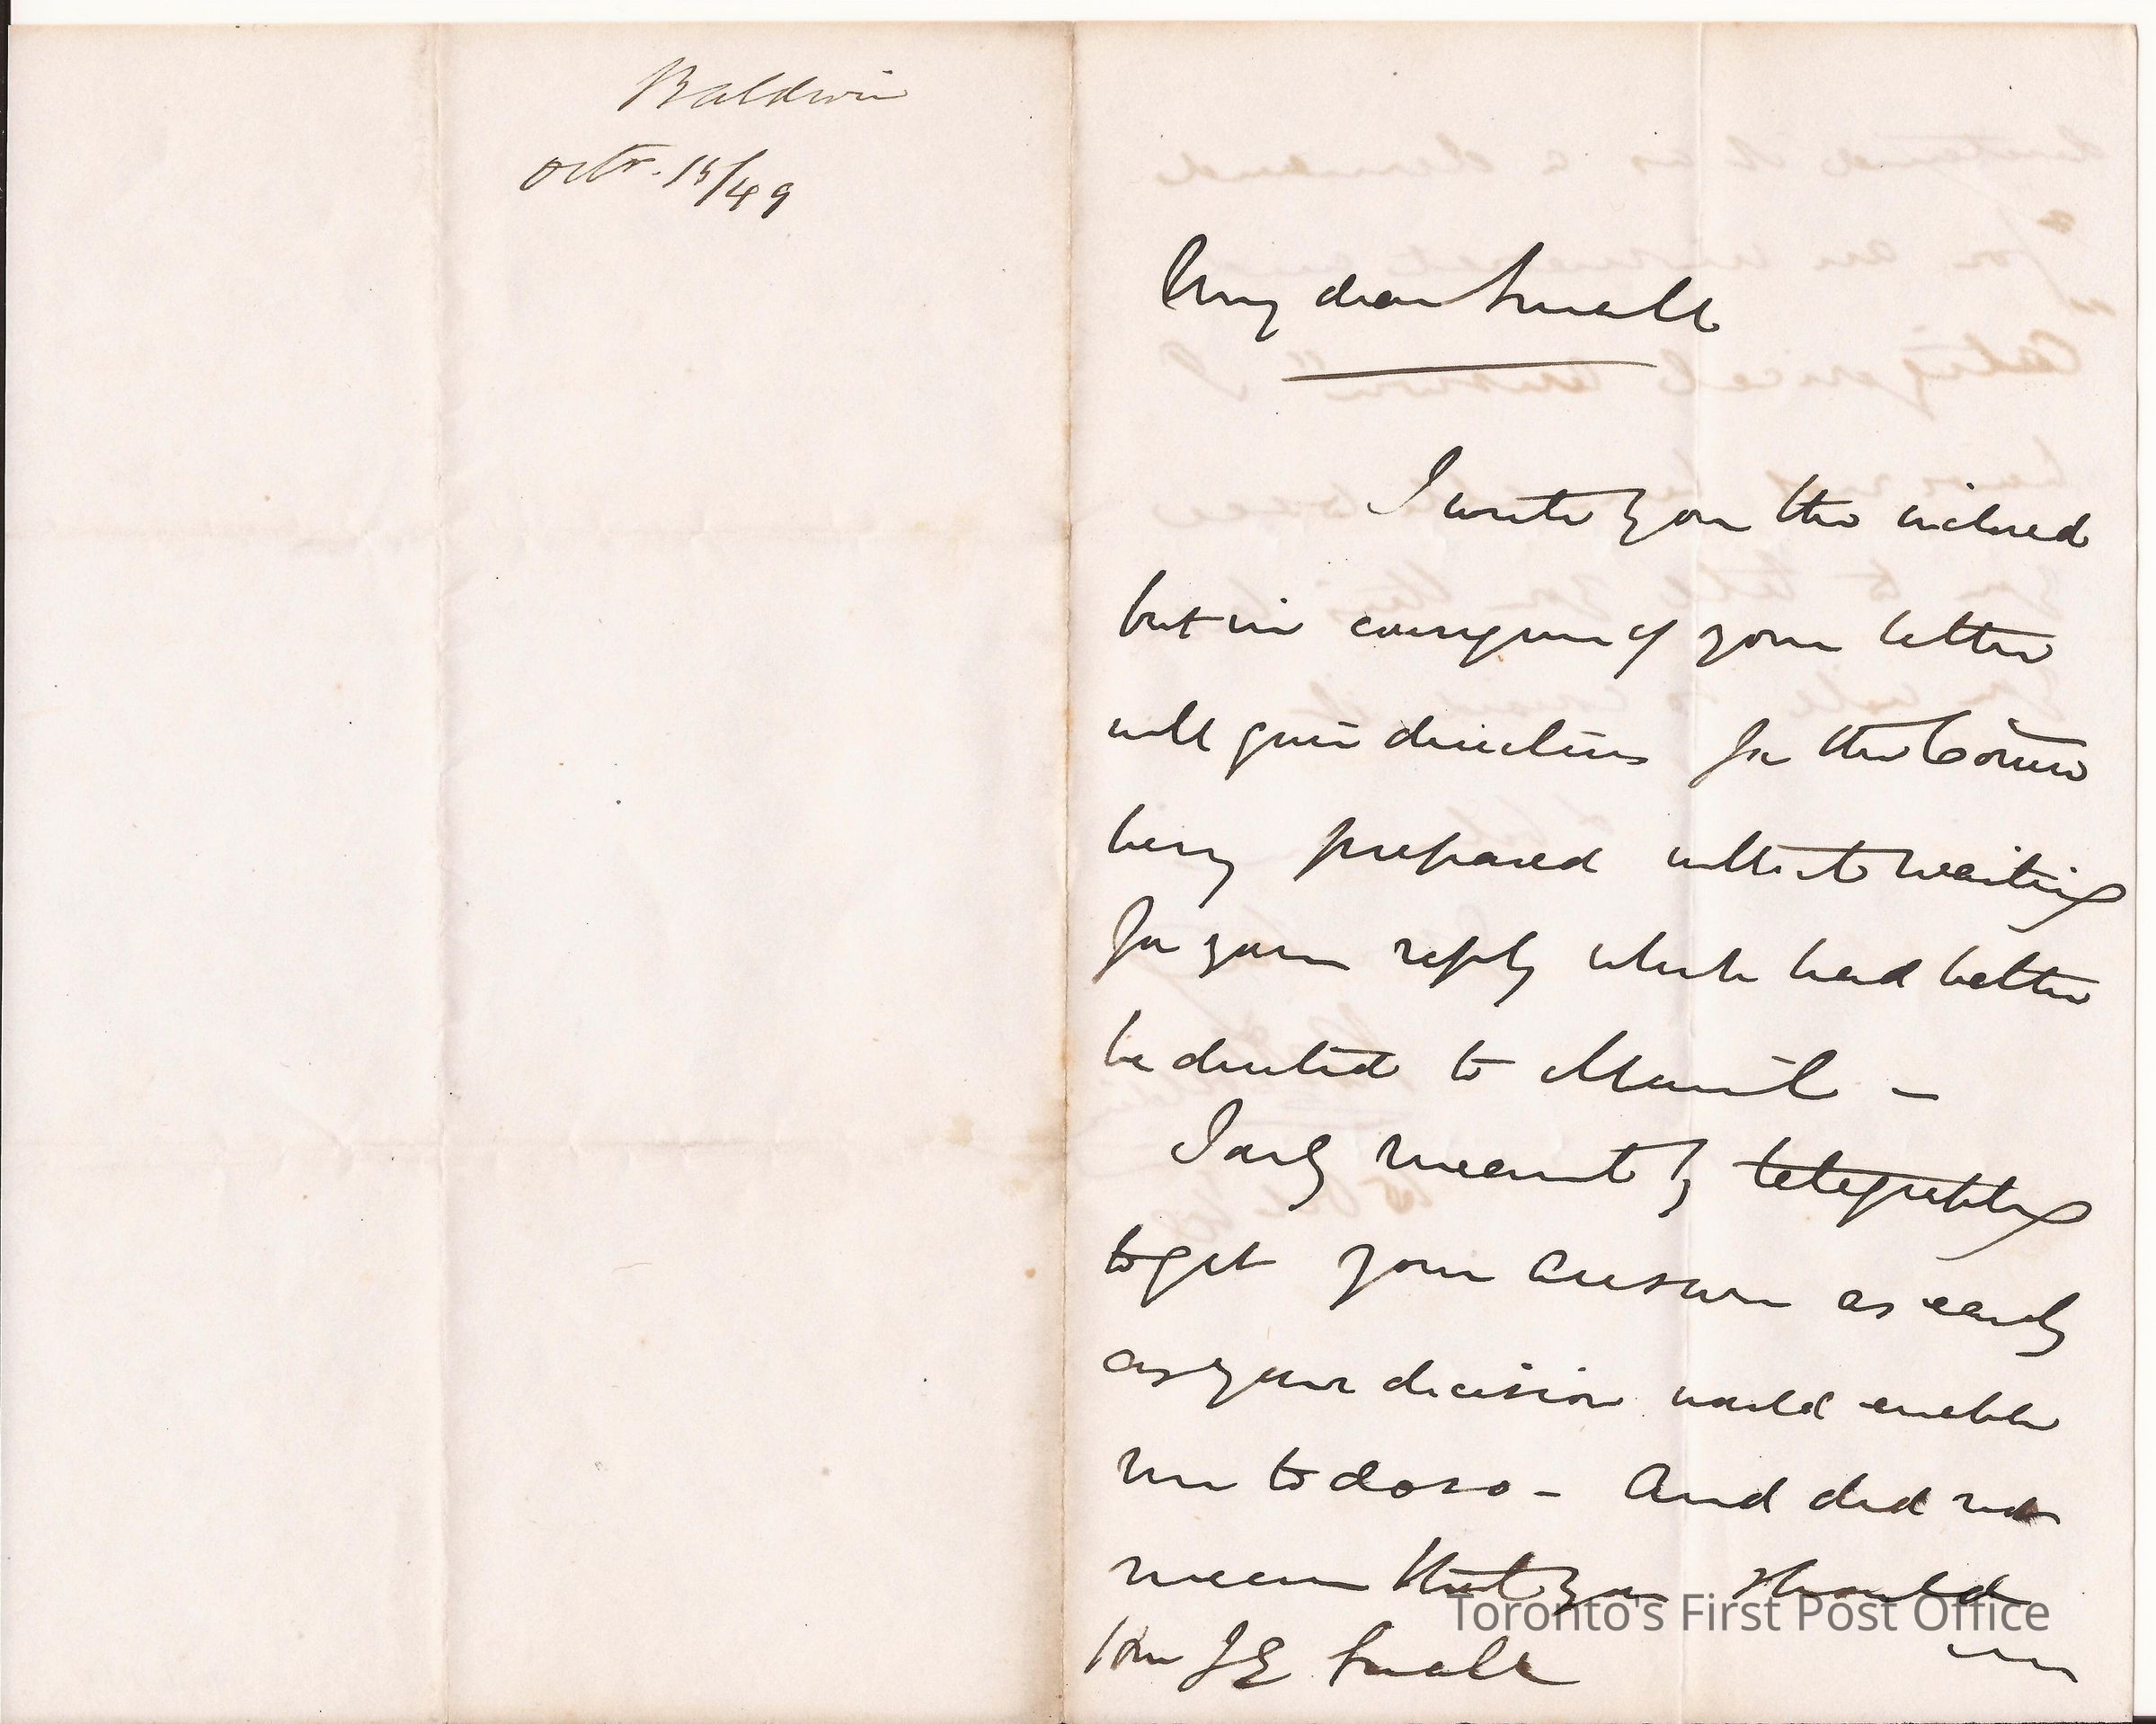 Baldwin
Octr. 15/49
My dear Small
I wrote you the inclosed
but in consequence of your letter
will give directions for the Comn
being prepared without waiting
for your reply which had better
be directed to Montl –
I only meant by telegraphing
to get your answer as early
as your decision would enable
me to do so – And did not
mean that you should
Hon J E Small
Toronto's First Post Office